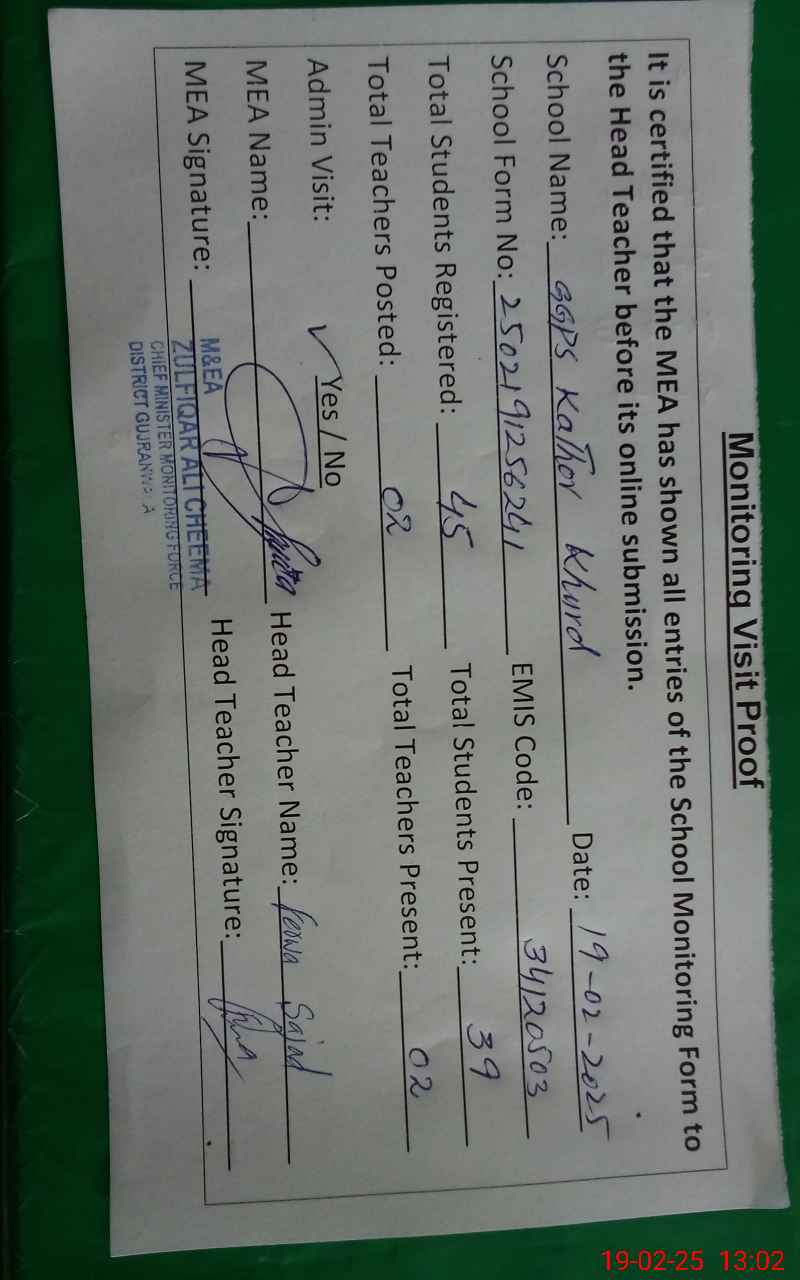 Monitoring Visit Proof
It is certified that the MEA has shown all entries of the School Monitoring Form to
the Head Teacher before its online submission.
School Name: GGPS Kathor Khurd Date: 19-02-2025
School Form No: 2502191256241 EMIS Code: 34120503
Total Students Registered: 45 Total Students Present: 39
Total Teachers Posted: 02 Total Teachers Present: 02
Admin Visit: ✓ Yes / No
MEA Name: Head Teacher Name: Sajad
MEA Signature: Head Teacher Signature:
M&EA
ZULFIQAR ALI CHEEMA
CHIEF MINISTER MONITORING FORCE
DISTRICT GUJRANWALA
19-02-25 13:02